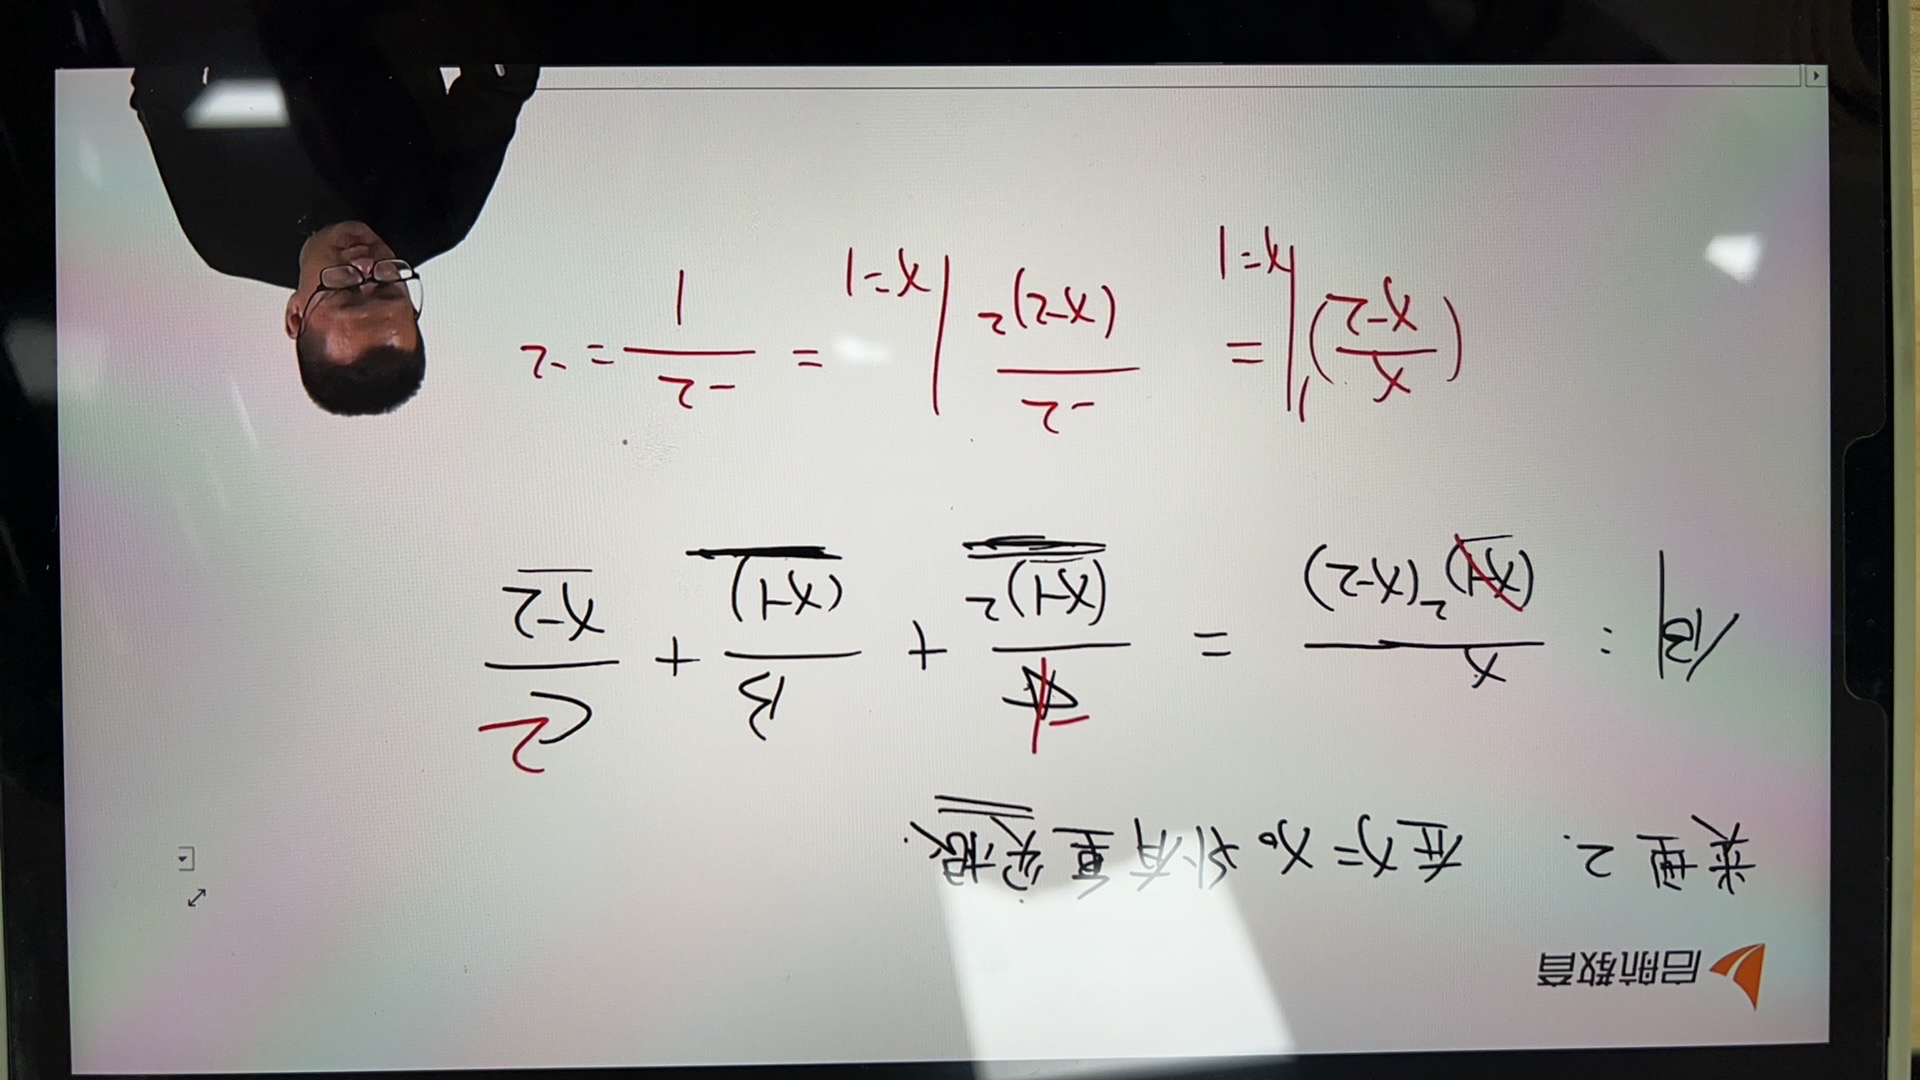 启航教育
类型2. 在x=x₀处有重实根.
例: x/((x-1)²(x-2)) = A/(x-1)² + B/(x-1) + C/(x-2)
-1 2
(x/(x-2))'|x=1 = -2/(x-2)²|x=1 = -2/1 = -2